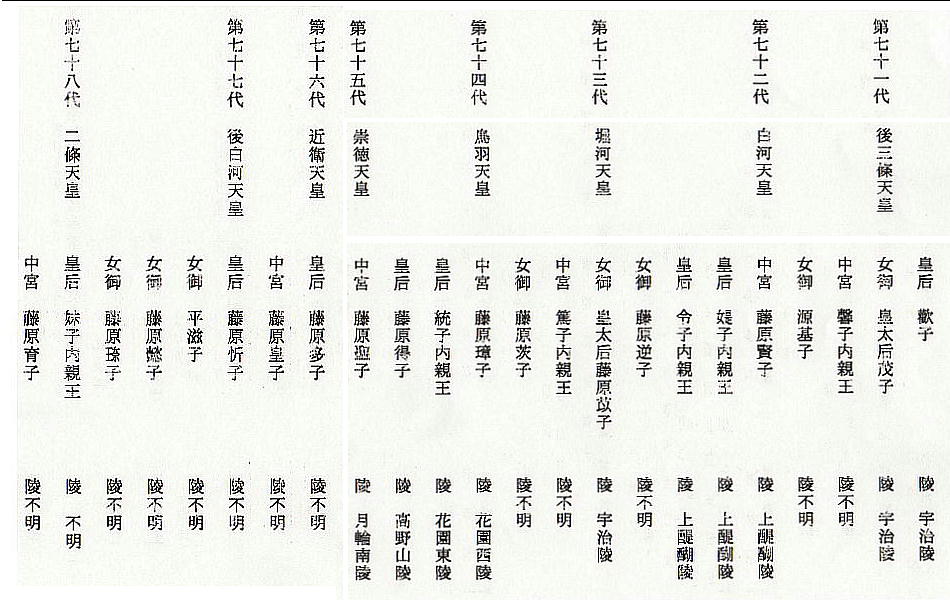 皇后 歡子 陵 宇治陵
第七十一代 後三條天皇 女御 皇太后茂子 陵 宇治陵
中宮 馨子内親王 陵不明
女御 源基子 陵不明
第七十二代 白河天皇 中宮 藤原賢子 陵 上醍醐陵
皇后 媞子内親王 陵 上醍醐陵
皇后 令子内親王 陵 上醍醐陵
女御 藤原逆子 陵不明
第七十三代 堀河天皇 女御 皇太后藤原苡子 陵 宇治陵
中宮 篤子内親王 陵不明
女御 藤原茨子 陵不明
第七十四代 鳥羽天皇 中宮 藤原璋子 陵 花園西陵
皇后 統子内親王 陵 花園東陵
皇后 藤原得子 陵 高野山陵
第七十五代 崇徳天皇 中宮 藤原聖子 陵 月輪南陵
第七十六代 近衛天皇 皇后 藤原多子 陵不明
中宮 藤原皇子 陵不明
第七十七代 後白河天皇 皇后 藤原忻子 陵不明
女御 平滋子 陵不明
女御 藤原懿子 陵不明
女御 藤原琮子 陵不明
第七十八代 二條天皇 皇后 姝子内親王 陵 不明
中宮 藤原育子 陵不明